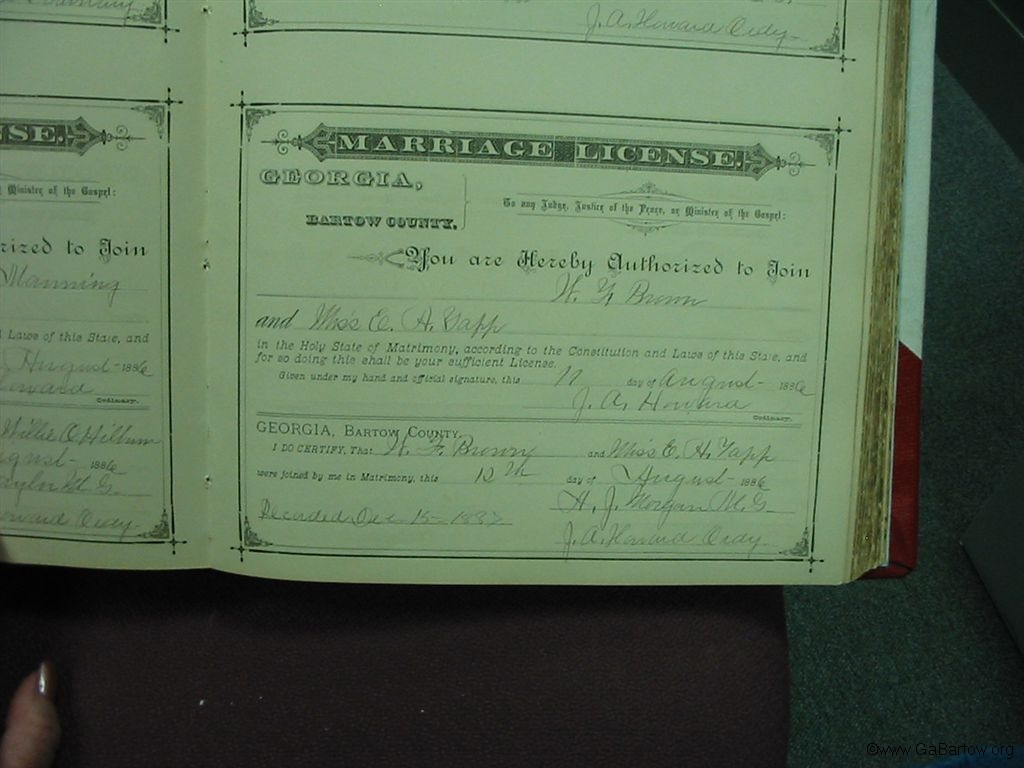 J. A. Howard Ordy
NSE.
Minister of the Gospel:
rized to Join
Manning
Laws of this State, and
August - 1886
oward
Ordinary.
Willie O Hilburn
gust - 1886
aylor M. G.
oward Orday
MARRIAGE LICENSE.
GEORGIA,
BARTOW COUNTY.
To any Judge, Justice of the Peace, or Minister of the Gospel:
You are Hereby Authorized to Join
W. F. Brown
and Miss E. A. Tapp
in the Holy State of Matrimony, according to the Constitution and Laws of this State, and
for so doing this shall be your sufficient License.
Given under my hand and official signature, this 11 day of August - 1886
J. A. Howard
Ordinary.
GEORGIA, BARTOW COUNTY.
I DO CERTIFY, That W. F. Brown and Miss E. A. Tapp
were joined by me in Matrimony, this 12th day of August - 1886
A. J. Morgan M. G.
Recorded Dec 15 - 1887
J. A. Howard Orday
©www.GaBartow.org